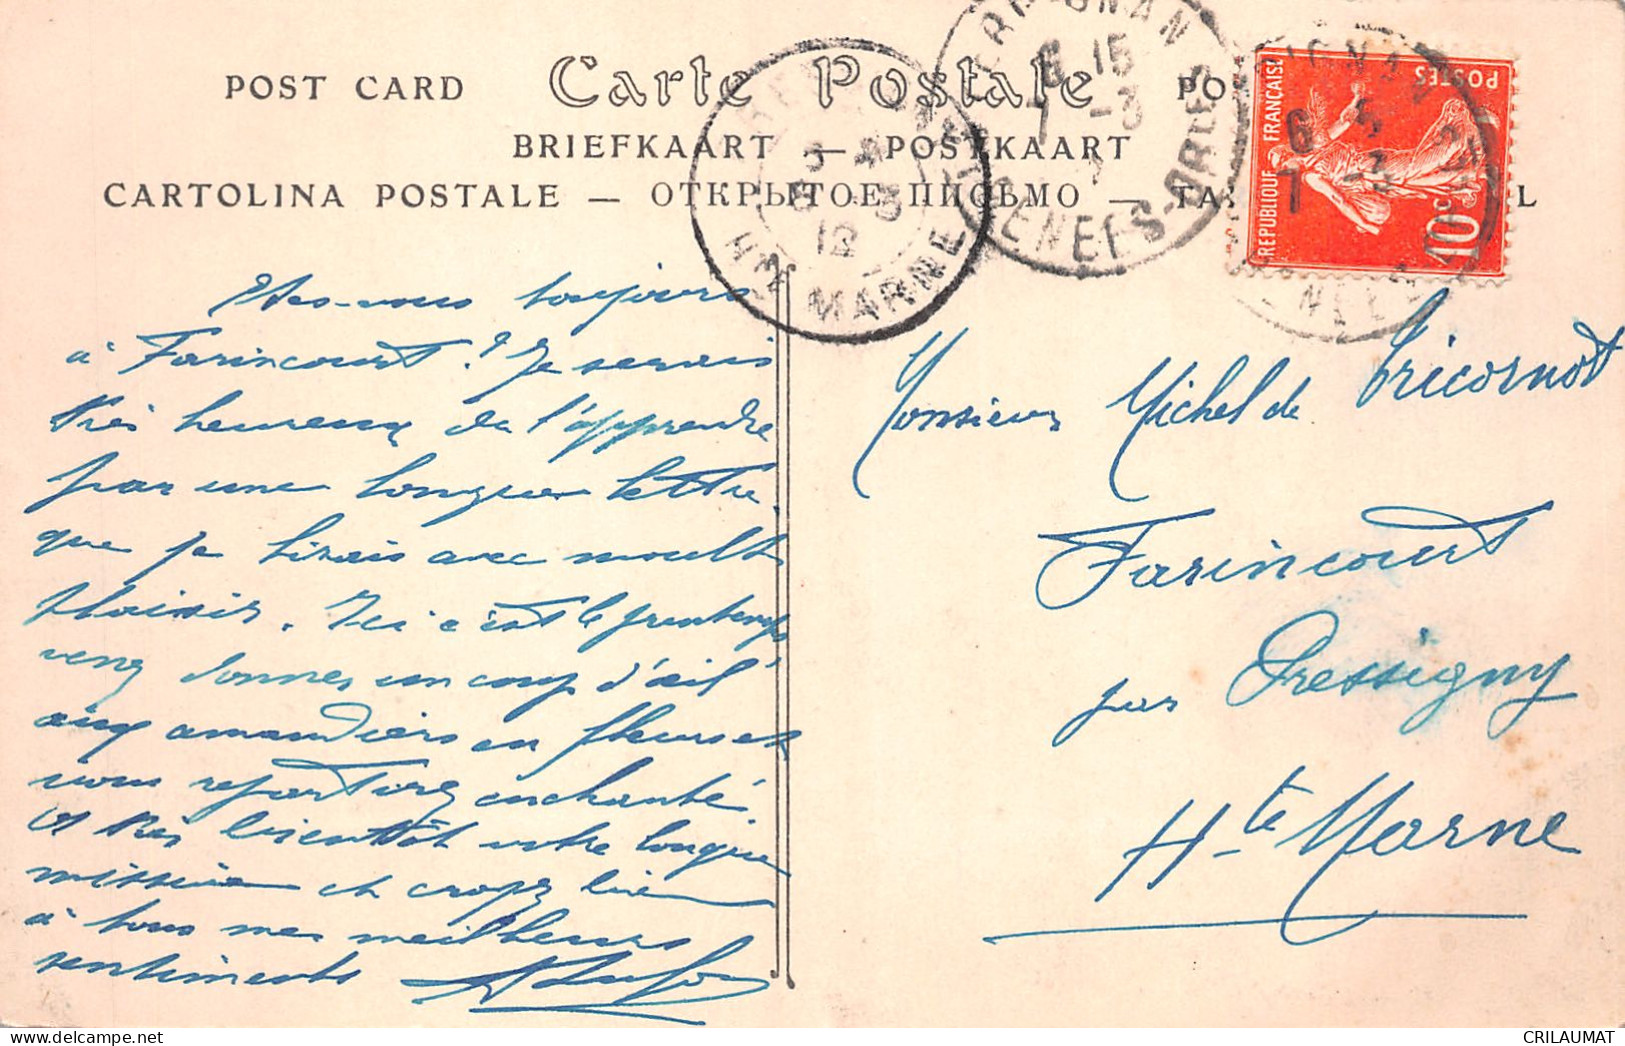 POST CARD Carte Postale PO
BRIEFKAART — POSTKAART
CARTOLINA POSTALE — ОТКРЫТОЕ ПИСЬМО — TA L
PERPIGNAN
6 15
7 -3
PYRENEES-ORLES
5 3
12
HTE MARNE
REPUBLIQUE FRANÇAISE
POSTES
10 c
Etes-vous toujours
à Farincourt ? Je serais
très heureux de l'apprendre
par une longue lettre
que je lirais avec moult
plaisir. Ici c'est le printemps
venez donner un coup d'œil
aux amandiers en fleurs et
vous repartirez enchanté.
A très bientôt votre longue
missive et croyez bien
à tous mes meilleurs
sentiments
Monsieur Michel de Tricornot
Farincourt
par Pressigny
Hte Marne
CRILAUMAT